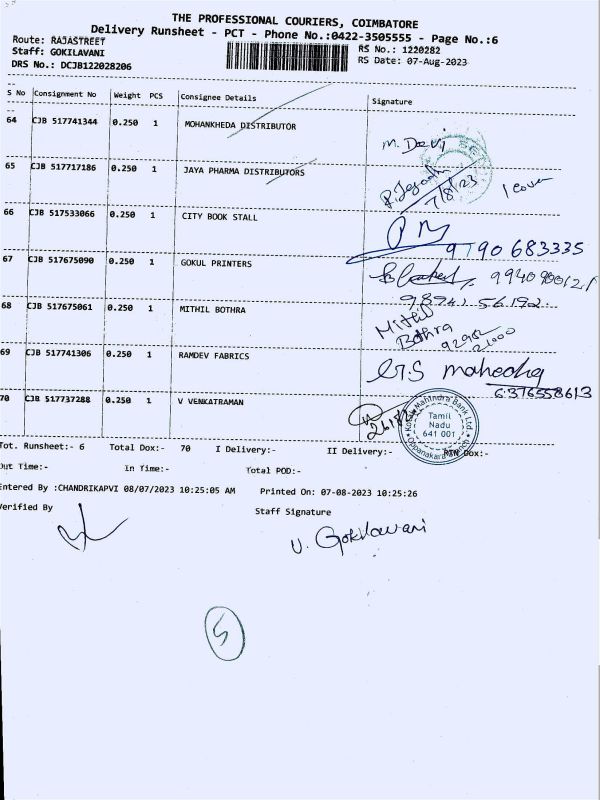 THE PROFESSIONAL COURIERS, COIMBATORE
Delivery Runsheet - PCT - Phone No.:0422-3505555 - Page No.:6
Route: RAJASTREET
RS No.: 1220282
Staff: GOKILAVANI
RS Date: 07-Aug-2023
DRS No.: DCJB122028206
S No Consignment No Weight PCS Consignee Details Signature
64 CJB 517741344 0.250 1 MOHANKHEDA DISTRIBUTOR
M. Devi
65 CJB 517717186 0.250 1 JAYA PHARMA DISTRIBUTORS
7/8/23 1 Cover
66 CJB 517533066 0.250 1 CITY BOOK STALL
9790683335
67 CJB 517675090 0.250 1 GOKUL PRINTERS
68 CJB 517675061 0.250 1 MITHIL BOTHRA
Mithil
Bothra
69 CJB 517741306 0.250 1 RAMDEV FABRICS
6376558613
70 CJB 517737288 0.250 1 V VENKATRAMAN
Kotak Mahindra Bank Ltd.
Tamil
Nadu
641 001
Tot. Runsheet:- 6 Total Dox:- 70 I Delivery:- II Delivery:- RTN Dox:-
Out Time:- In Time:- Total POD:-
Entered By :CHANDRIKAPVI 08/07/2023 10:25:05 AM Printed On: 07-08-2023 10:25:26
Verified By Staff Signature
5